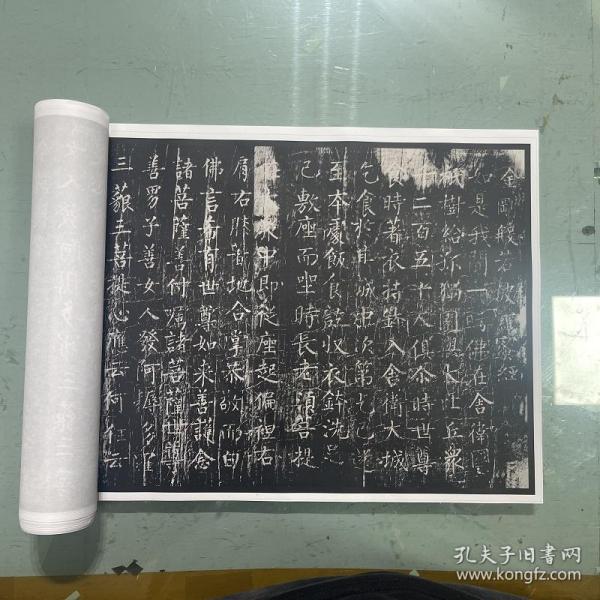 金剛般若波羅蜜經
如是我聞一時佛在舍衛國
祇樹給孤獨園與大比丘衆
千二百五十人俱尒時世尊
食時著衣持鉢入舍衛大城
乞食於其城中次第乞已還
至本處飯食訖收衣鉢洗足
已敷座而坐時長老須菩提
在大衆中即從座起偏袒右
肩右膝著地合掌恭敬而白
佛言希有世尊如来善護念
諸菩薩善付囑諸菩薩世尊
善男子善女人發阿耨多羅
三藐三菩提心應云何住云
孔夫子旧書网
www.kongfz.com